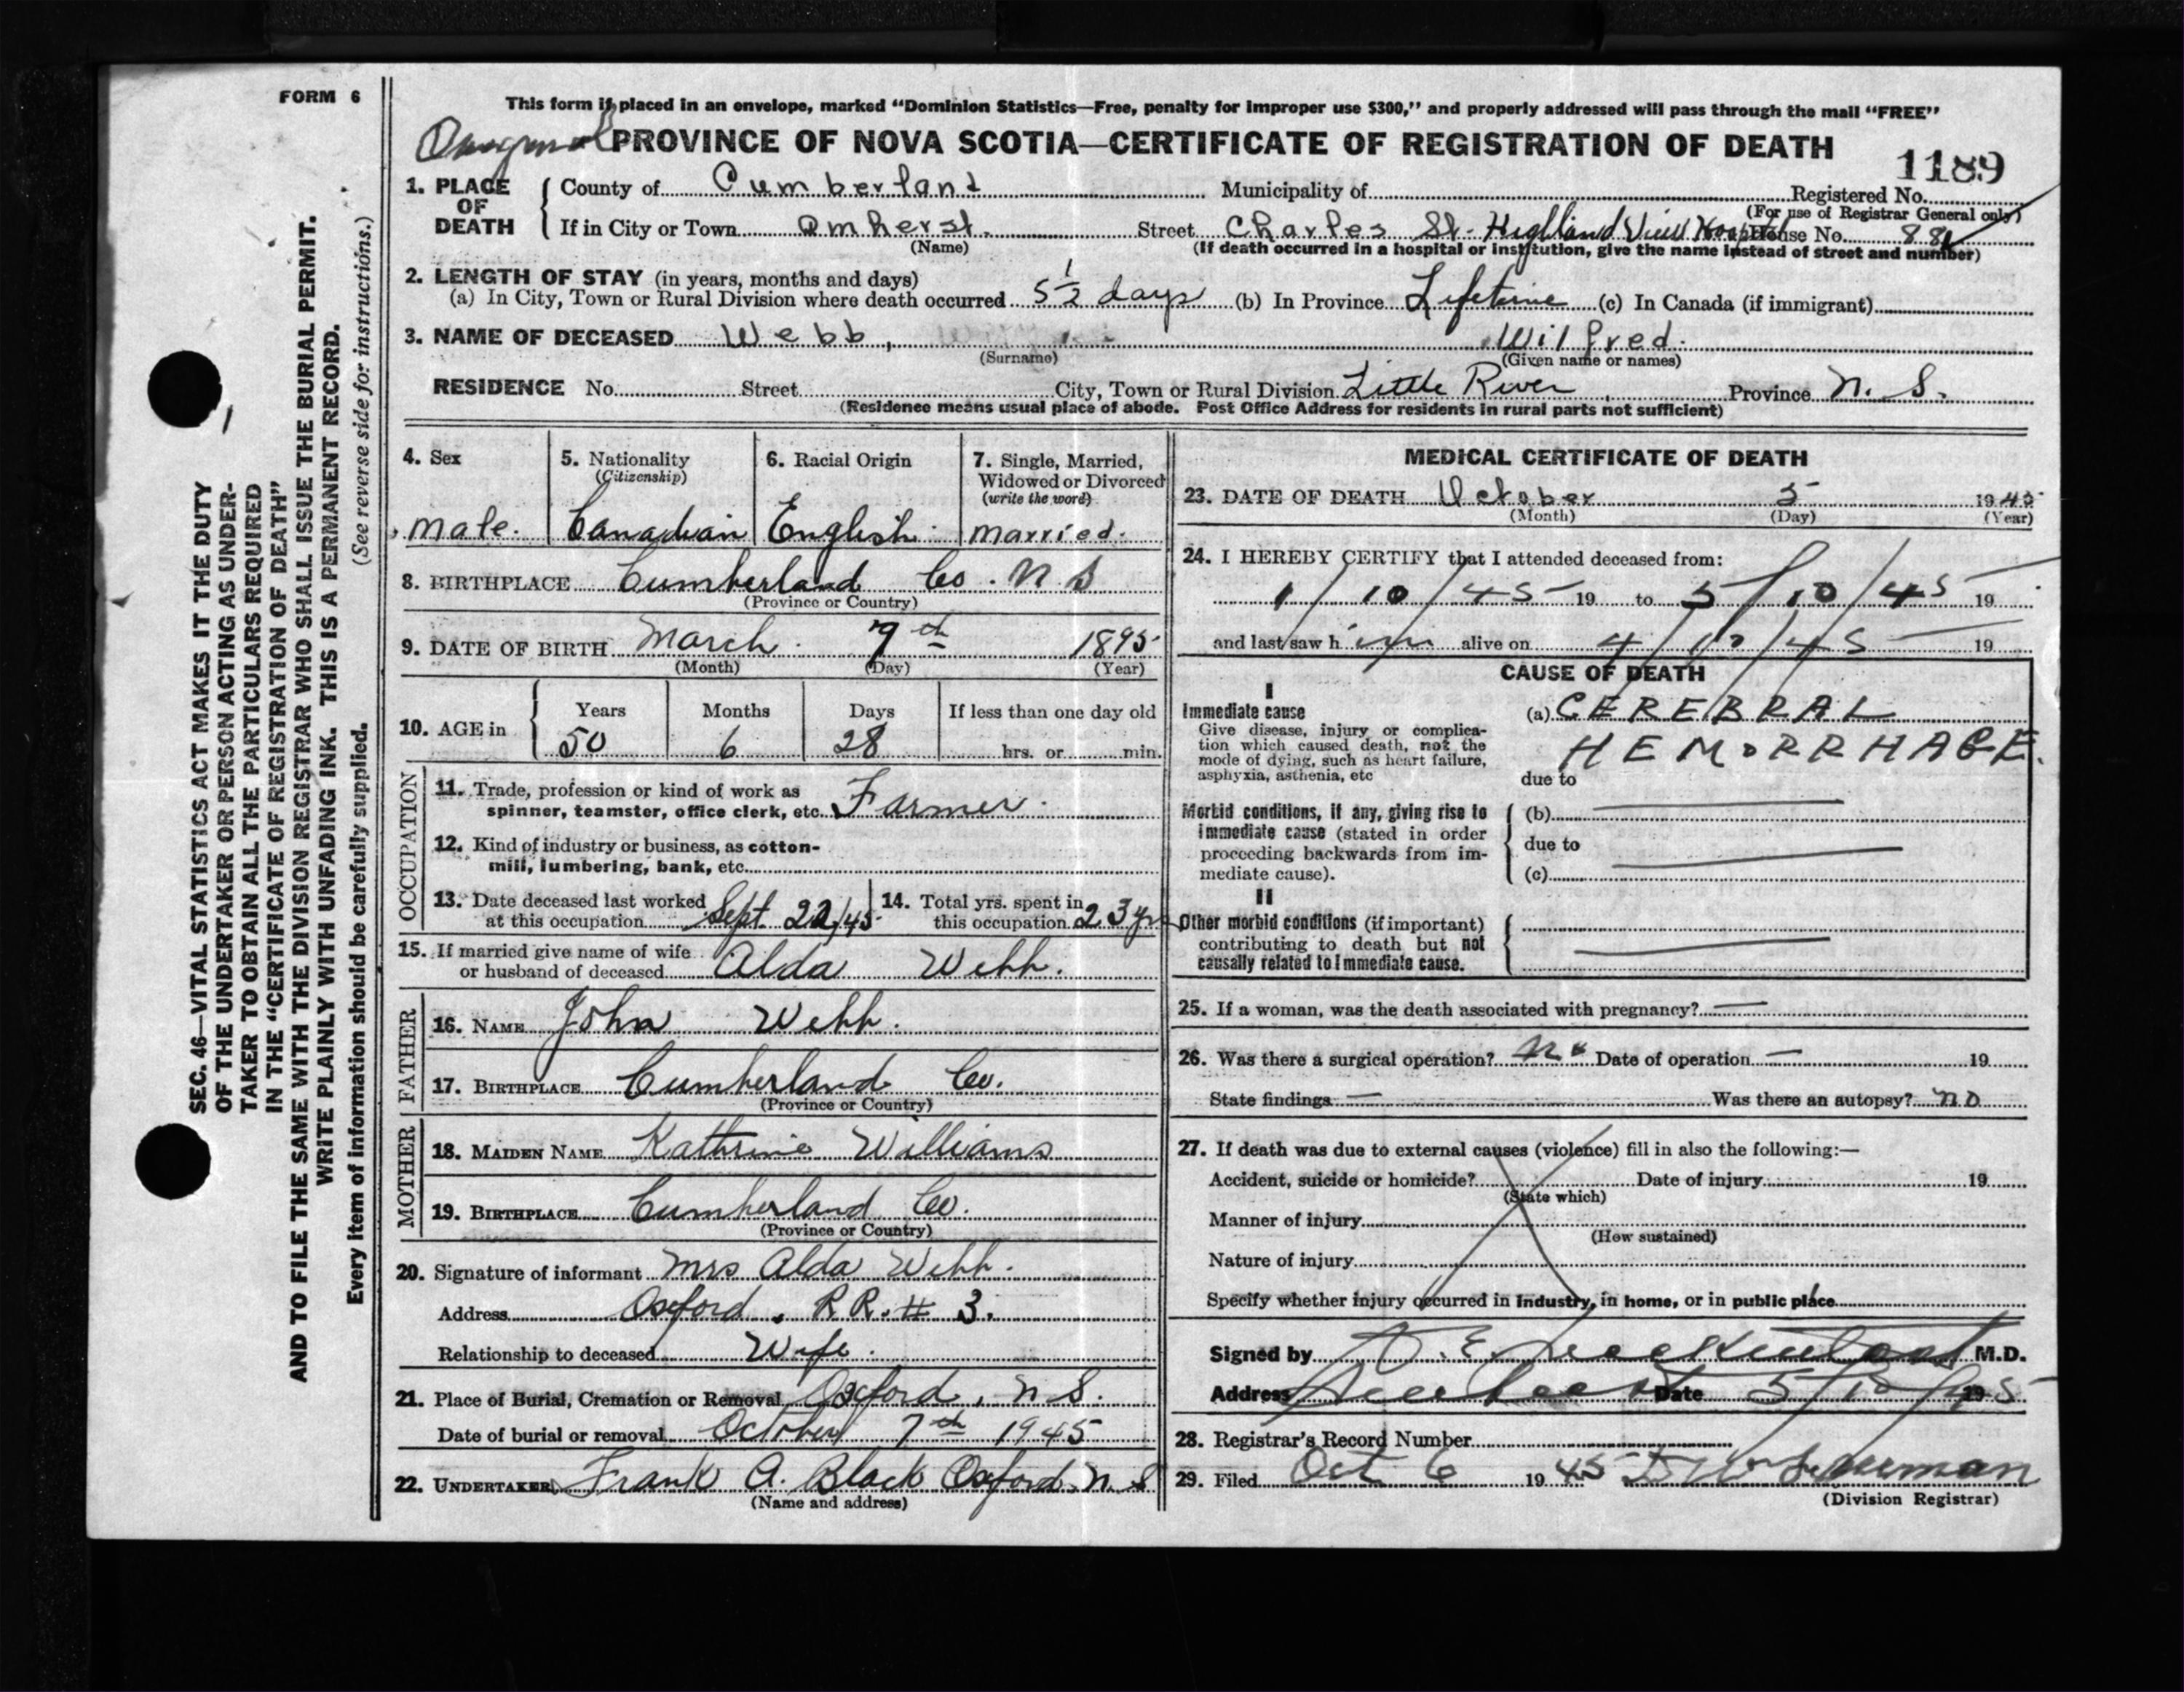 FORM 6
This form if placed in an envelope, marked "Dominion Statistics—Free, penalty for improper use $300," and properly addressed will pass through the mail "FREE"
PROVINCE OF NOVA SCOTIA—CERTIFICATE OF REGISTRATION OF DEATH
1189
1. PLACE OF DEATH County of Cumberland Municipality of Registered No.
(For use of Registrar General only)
If in City or Town Amherst. Street Charles St. Highland View Hospital House No. 88
(Name) (If death occurred in a hospital or institution, give the name instead of street and number)
2. LENGTH OF STAY (in years, months and days)
(a) In City, Town or Rural Division where death occurred 5 1/2 days (b) In Province Lifetime (c) In Canada (if immigrant)
3. NAME OF DECEASED Webb, Wilfred.
(Surname) (Given name or names)
RESIDENCE No. Street City, Town or Rural Division Little River, Province N. S.
(Residence means usual place of abode. Post Office Address for residents in rural parts not sufficient)
4. Sex 5. Nationality (Citizenship) 6. Racial Origin 7. Single, Married, Widowed or Divorced (write the word)
male. Canadian English married.
8. BIRTHPLACE Cumberland Co. N S
(Province or Country)
9. DATE OF BIRTH March 7th 1895
(Month) (Day) (Year)
10. AGE in Years Months Days If less than one day old
50 6 28 hrs. or min.
OCCUPATION
11. Trade, profession or kind of work as
spinner, teamster, office clerk, etc. Farmer.
12. Kind of industry or business, as cotton-
mill, lumbering, bank, etc.
13. Date deceased last worked at this occupation Sept. 22/45 14. Total yrs. spent in this occupation 23 yrs
15. If married give name of wife
or husband of deceased Alda Webb.
FATHER
16. NAME John Webb.
17. BIRTHPLACE Cumberland Co.
(Province or Country)
MOTHER
18. MAIDEN NAME Kathrine Williams
19. BIRTHPLACE Cumberland Co.
(Province or Country)
20. Signature of informant Mrs Alda Webb.
Address Oxford, R.R. # 3.
Relationship to deceased Wife.
21. Place of Burial, Cremation or Removal Oxford, N S.
Date of burial or removal October 7th 1945
22. UNDERTAKER Frank A. Black Oxford. N. S
(Name and address)
MEDICAL CERTIFICATE OF DEATH
23. DATE OF DEATH October 5 1945
(Month) (Day) (Year)
24. I HEREBY CERTIFY that I attended deceased from:
1/10/45 19 to 5/10/45 19
and last saw him alive on 4/10/45 19
CAUSE OF DEATH
I
Immediate cause
Give disease, injury or complica-
tion which caused death, not the
mode of dying, such as heart failure,
asphyxia, asthenia, etc
(a) CEREBRAL
HEMORRHAGE.
due to
Morbid conditions, if any, giving rise to
immediate cause (stated in order
proceeding backwards from im-
mediate cause).
(b)
due to
(c)
II
Other morbid conditions (if important)
contributing to death but not
causally related to immediate cause.
25. If a woman, was the death associated with pregnancy? —
26. Was there a surgical operation? No Date of operation — 19
State findings — Was there an autopsy? no
27. If death was due to external causes (violence) fill in also the following:—
Accident, suicide or homicide? Date of injury 19
(State which)
Manner of injury
(How sustained)
Nature of injury
Specify whether injury occurred in industry, in home, or in public place
Signed by M.D.
Address Date 5/10/1945
28. Registrar's Record Number
29. Filed Oct 6 1945
(Division Registrar)
SEC. 46—VITAL STATISTICS ACT MAKES IT THE DUTY
OF THE UNDERTAKER OR PERSON ACTING AS UNDER-
TAKER TO OBTAIN ALL THE PARTICULARS REQUIRED
IN THE "CERTIFICATE OF REGISTRATION OF DEATH"
AND TO FILE THE SAME WITH THE DIVISION REGISTRAR WHO SHALL ISSUE THE BURIAL PERMIT.
WRITE PLAINLY WITH UNFADING INK. THIS IS A PERMANENT RECORD.
Every item of information should be carefully supplied. (See reverse side for instructions.)